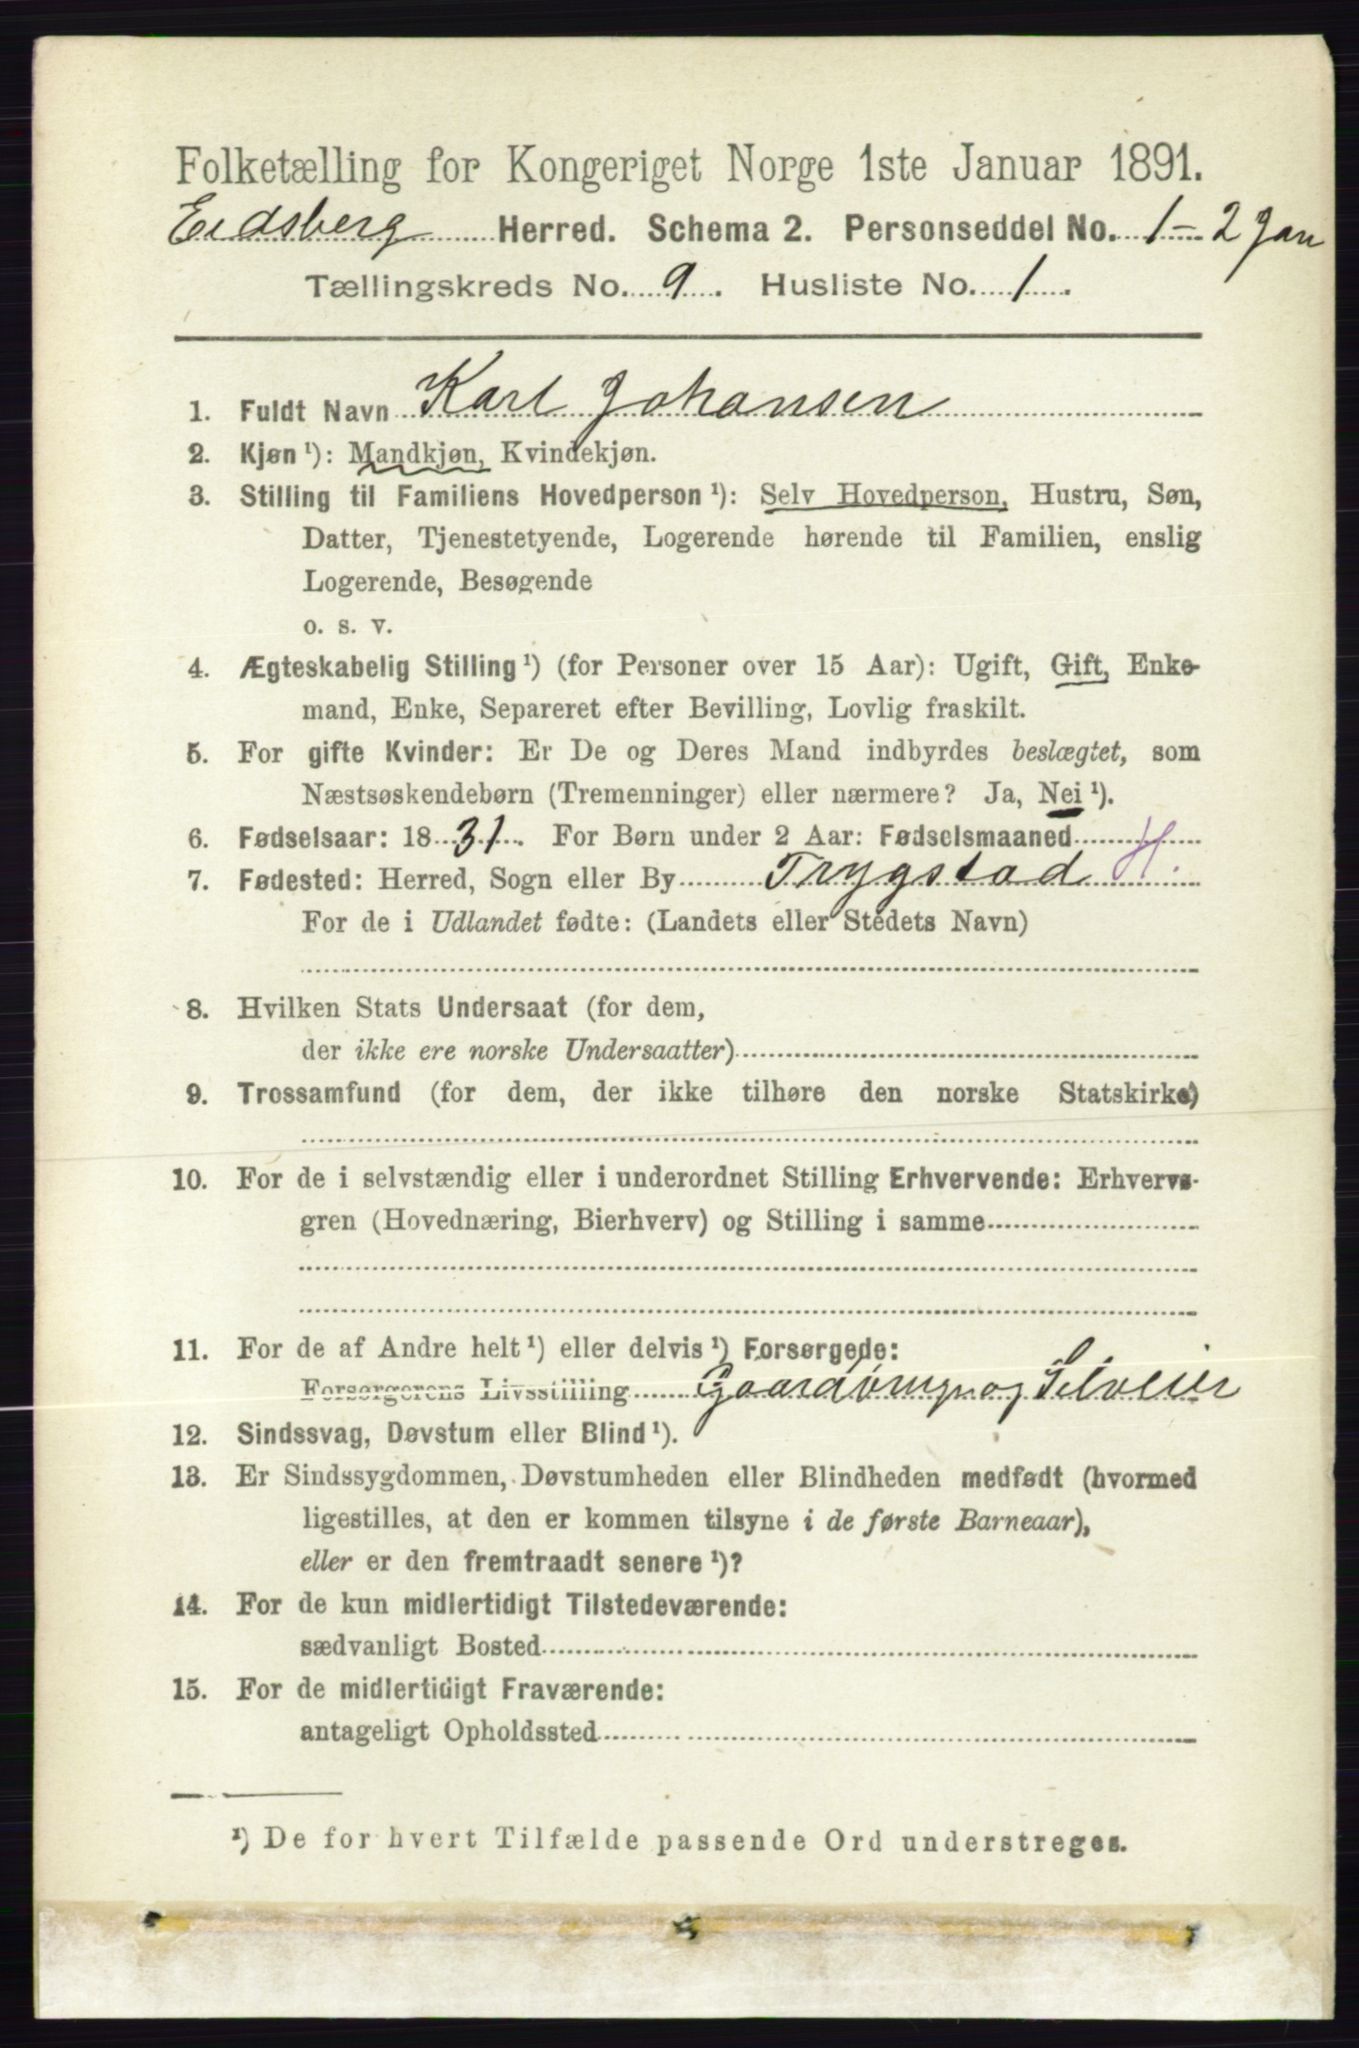 Folketælling for Kongeriget Norge 1ste Januar 1891.
Eidsberg Herred. Schema 2. Personseddel No. 1 - 2 Jan
Tællingskreds No. 9. Husliste No. 1.
1. Fuldt Navn Karl Johansen
2. Kjøn ¹): Mandkjøn, Kvindekjøn.
3. Stilling til Familiens Hovedperson ¹): Selv Hovedperson, Hustru, Søn,
Datter, Tjenestetyende, Logerende hørende til Familien, enslig
Logerende, Besøgende
o. s. v.
4. Ægteskabelig Stilling ¹) (for Personer over 15 Aar): Ugift, Gift, Enke-
mand, Enke, Separeret efter Bevilling, Lovlig fraskilt.
5. For gifte Kvinder: Er De og Deres Mand indbyrdes beslægtet, som
Næstsøskendebørn (Tremenninger) eller nærmere? Ja, Nei ¹).
6. Fødselsaar: 1831. For Børn under 2 Aar: Fødselsmaaned
7. Fødested: Herred, Sogn eller By Trygstad H.
For de i Udlandet fødte: (Landets eller Stedets Navn)
8. Hvilken Stats Undersaat (for dem,
der ikke ere norske Undersaatter)
9. Trossamfund (for dem, der ikke tilhøre den norske Statskirke)
10. For de i selvstændig eller i underordnet Stilling Erhvervende: Erhvervs-
gren (Hovednæring, Bierhverv) og Stilling i samme
11. For de af Andre helt ¹) eller delvis ¹) Forsørgede:
Forsørgerens Livsstilling Gaardbruger og Selveier
12. Sindssvag, Døvstum eller Blind ¹).
13. Er Sindssygdommen, Døvstumheden eller Blindheden medfødt (hvormed
ligestilles, at den er kommen tilsyne i de første Barneaar),
eller er den fremtraadt senere ¹)?
14. For de kun midlertidigt Tilstedeværende:
sædvanligt Bosted
15. For de midlertidigt Fraværende:
antageligt Opholdssted
¹) De for hvert Tilfælde passende Ord understreges.